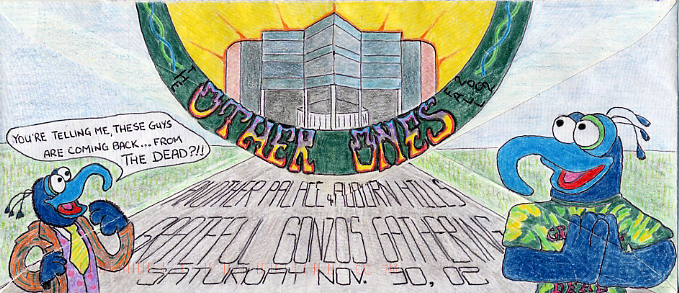 THE OTHER ONES
YOU'RE TELLING ME, THESE GUYS
ARE COMING BACK... FROM
THE DEAD?!!
ANOTHER PALACE, AUBURN HILLS
GRATEFUL GONZOS GATHERING
SATURDAY NOV. 30, 02
DEAD